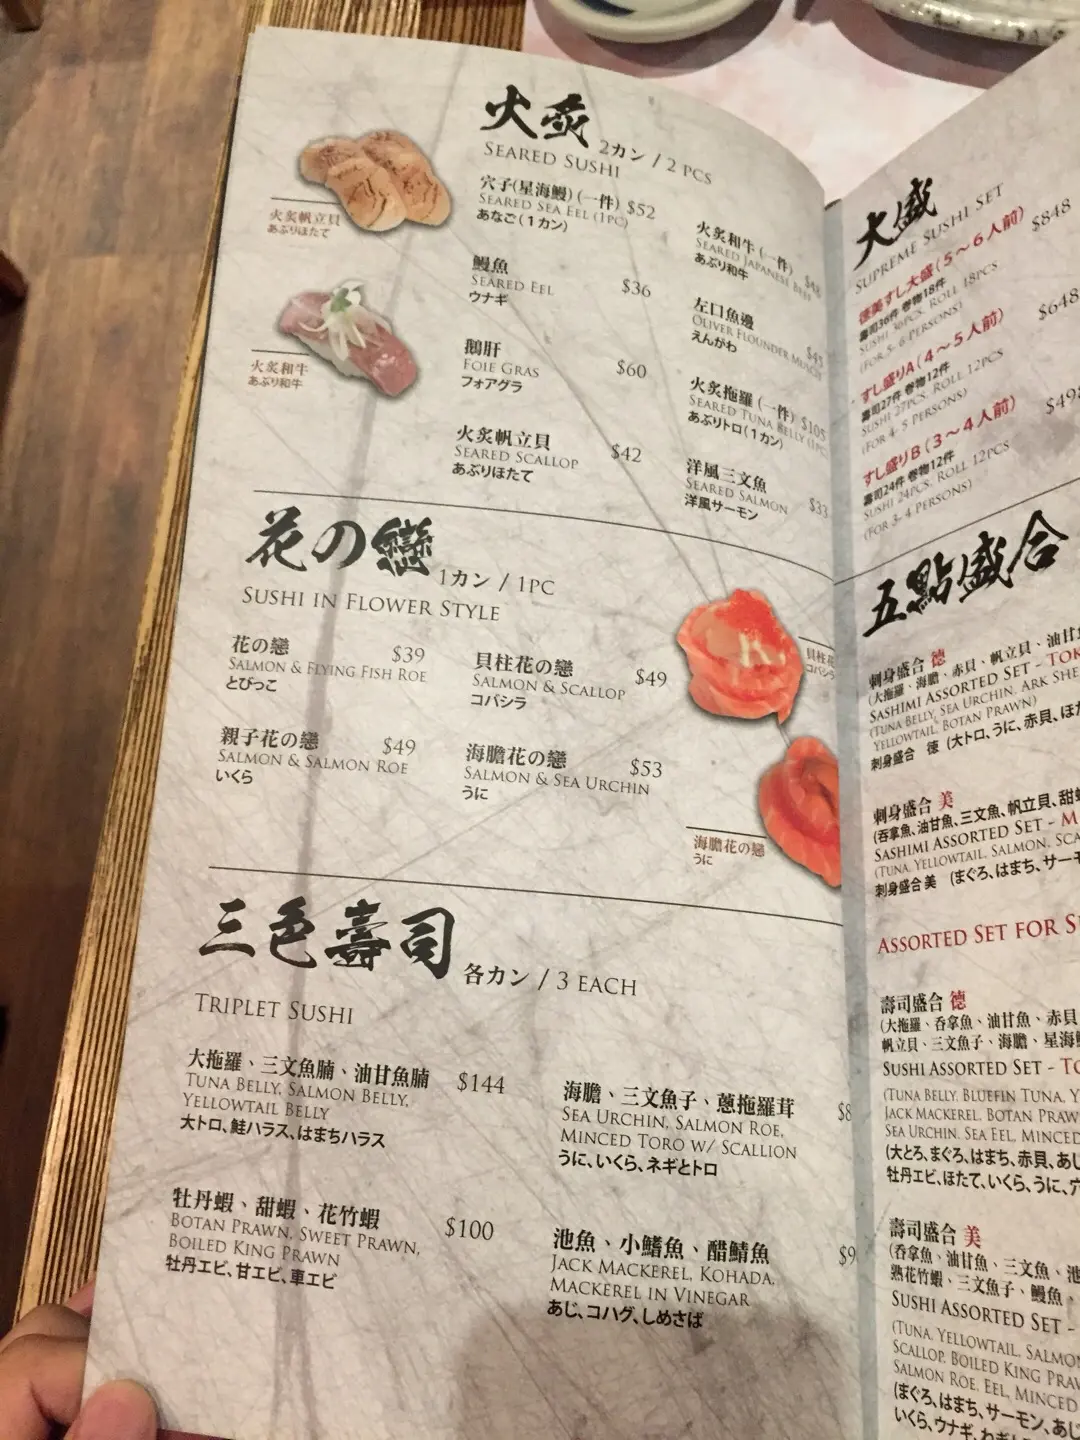 火炙 2カン / 2 PCS
SEARED SUSHI
火炙帆立貝
あぶりほたて
火炙和牛
あぶり和牛
穴子(星海鰻) (一件) $52
SEARED SEA EEL (1PC)
あなご(1カン)
鰻魚
SEARED EEL $36
ウナギ
鵝肝
FOIE GRAS $60
フォアグラ
火炙帆立貝
SEARED SCALLOP $42
あぶりほたて
火炙和牛 (一件)
SEARED JAPANESE BEEF
あぶり和牛
左口魚邊
OLIVER FLOUNDER
えんがわ
火炙拖羅 (一件) $105
SEARED TUNA BELLY (1PC)
あぶりトロ(1カン)
洋風三文魚
SEARED SALMON $33
洋風サーモン
花の戀 1カン / 1PC
SUSHI IN FLOWER STYLE
花の戀 $39
SALMON & FLYING FISH ROE
とびっこ
貝柱花の戀 $49
SALMON & SCALLOP
コバシラ
親子花の戀 $49
SALMON & SALMON ROE
いくら
海膽花の戀 $53
SALMON & SEA URCHIN
うに
貝柱花
コバシラ
海膽花の戀
うに
三色壽司 各カン / 3 EACH
TRIPLET SUSHI
大拖羅、三文魚腩、油甘魚腩 $144
TUNA BELLY, SALMON BELLY,
YELLOWTAIL BELLY
大トロ、鮭ハラス、はまちハラス
海膽、三文魚子、蔥拖羅茸 $8
SEA URCHIN, SALMON ROE,
MINCED TORO W/ SCALLION
うに、いくら、ネギとトロ
牡丹蝦、甜蝦、花竹蝦 $100
BOTAN PRAWN, SWEET PRAWN,
BOILED KING PRAWN
牡丹エビ、甘エビ、車エビ
池魚、小鰭魚、醋鯖魚 $9
JACK MACKEREL, KOHADA,
MACKEREL IN VINEGAR
あじ、コハグ、しめさば
大盛
SUPREME SUSHI SET
德美すし大盛(5～6人前) $848
壽司36件 卷物18件
SUSHI 36PCS, ROLL 18PCS
(FOR 5- 6 PERSONS)
すし盛りA(4～5人前) $648
壽司27件 卷物12件
SUSHI 27PCS, ROLL 12PCS
(FOR 4- 5 PERSONS)
すし盛りB(3～4人前) $49
壽司24件 卷物12件
SUSHI 24PCS, ROLL 12PCS
(FOR 3- 4 PERSONS)
五點盛合
刺身盛合 德
(大拖羅、海膽、赤貝、帆立貝、油甘
SASHIMI ASSORTED SET - TOK
(TUNA BELLY, SEA URCHIN, ARK SHE
YELLOWTAIL, BOTAN PRAWN)
刺身盛合 徳 (大トロ、うに、赤貝、ほた
刺身盛合 美
(吞拿魚、油甘魚、三文魚、帆立貝、甜蝦
SASHIMI ASSORTED SET - M
(TUNA, YELLOWTAIL, SALMON, SCA
刺身盛合 美 (まぐろ、はまち、サーモ
ASSORTED SET FOR S
壽司盛合 德
(大拖羅、吞拿魚、油甘魚、赤貝
帆立貝、三文魚子、海膽、星海鰻
SUSHI ASSORTED SET - TO
(TUNA BELLY, BLUEFIN TUNA, Y
JACK MACKEREL, BOTAN PRAW
SEA URCHIN, SEA EEL, MINCED
(大とろ、まぐろ、はまち、赤貝、あじ
牡丹エビ、ほたて、いくら、うに、穴
壽司盛合 美
(吞拿魚、油甘魚、三文魚、池
熟花竹蝦、三文魚子、鰻魚、
SUSHI ASSORTED SET -
(TUNA, YELLOWTAIL, SALMO
SCALLOP, BOILED KING PRAW
SALMON ROE, EEL, MINCED
(まぐろ、はまち、サーモン、あじ
いくら、ウナギ、ねぎト